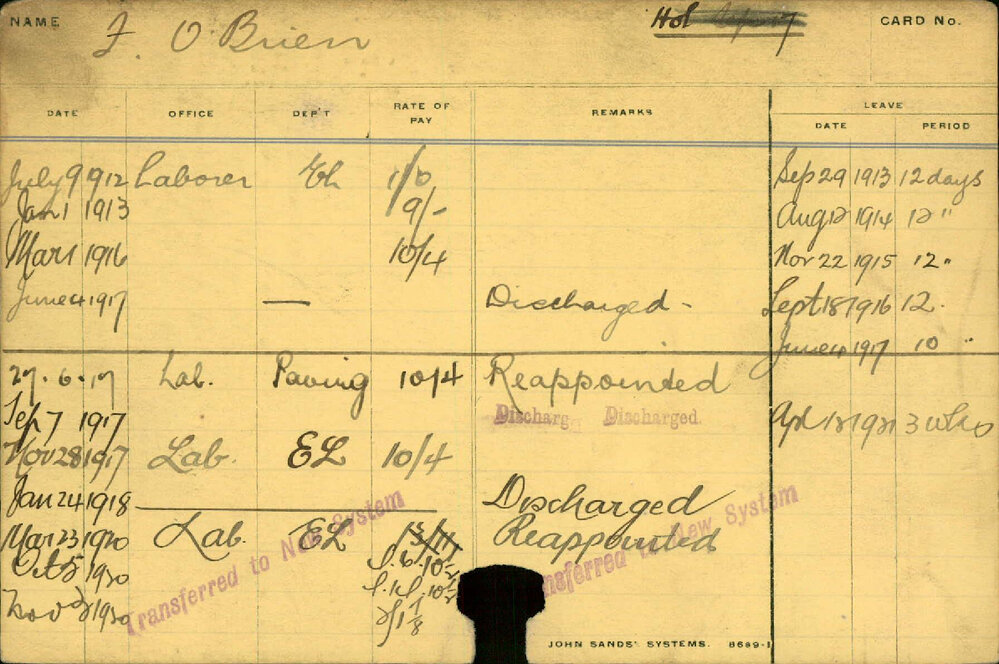 NAME F. O'Brien Hol CARD No.
DATE OFFICE DEP'T RATE OF PAY REMARKS LEAVE
DATE PERIOD
July 9 1912 Laborer Eh Sep 29 1913 12 days
Jan 1 1913 9/- Aug 12 1914 12 "
Mar 1 1916 10/4 Nov 22 1915 12 "
June 4 1917 — Discharged - Sept 18 1916 12 "
June 4 1917 10 "
27.6.17 Lab. Paving 10/4 Reappointed
Sep 7 1917 Discharg Discharged. 1921 3 wks
Nov 28 1917 Lab. EL 10/4
Jan 24 1918 Discharged
Mar 23 1920 Lab. EL Reappointed
Oct 5 1920
Nov 1920
Transferred to New System
Transferred to New System
JOHN SANDS' SYSTEMS. 8689-1